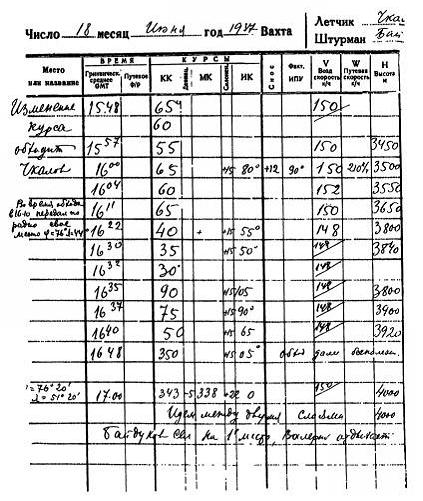 Число 18 месяц Июня год 1937 Вахта
Летчик Чка
Штурман Бай
Место или название
ВРЕМЯ
Гринвичск. среднее GMT
Путевое Ф/Р
КУРСЫ
КК МК ИК
Снос
Факт. ИПУ
V Возд скорость к/ч
W Путевая скорость к/ч
H Высота м
Изменение 15.48 65 150
курса 60
обходит 15 57 55 150 3450
Чкалов 16 00 65 +15 80° +12 90° 150 210 3500
16 04 60 152 3550
Во время обхода 16 11 65 150 3650
в 16 10 передал по
радио свое 16 22 40 + +15 55° 148 3800
место
16 30 35 +15 50° 148
16 32 30° 148
16 35 90 +15 105 148 3800
16 37 75 +15 90° 148 3900
16 40 50 +15 65 148 3920
16 48 350 +15 05° дали
=76° 20'
λ=51° 20' 17.00 343 -5 338 +22 0 150 4000
Идем между двумя слоями 4000
Байдуков сел на 1е место, Валерий отдыхает.